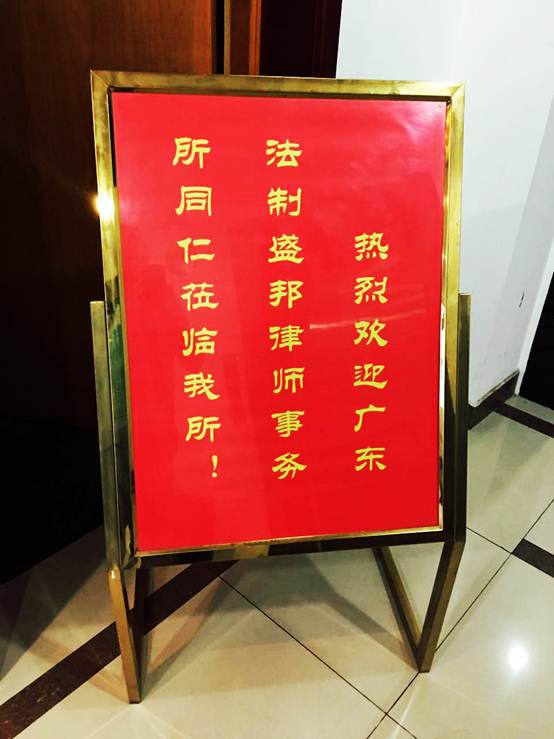 热烈欢迎广东
法制盛邦律师事务
所同仁莅临我所！